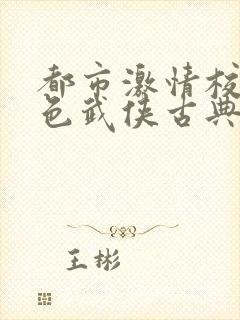 都市激情校
色武侠古典
王彬